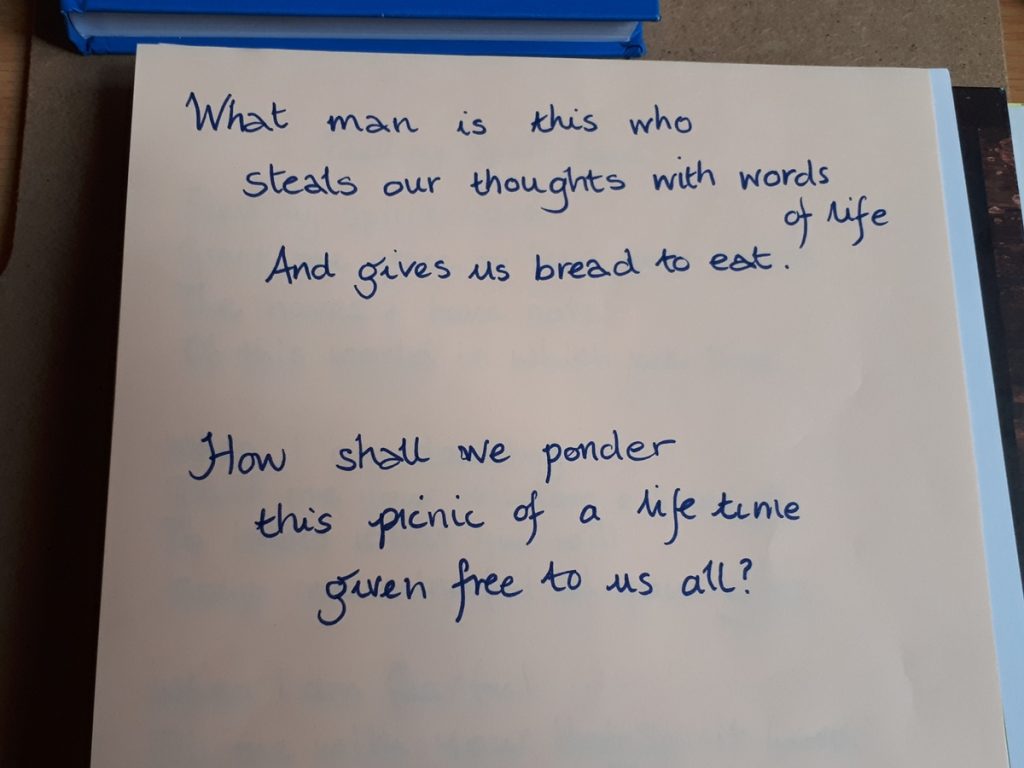 What man is this who
steals our thoughts with words
of life
And gives us bread to eat.
How shall we ponder
this picnic of a life time
given free to us all?